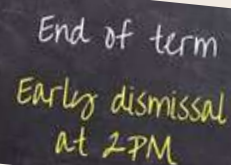 End of term
Early dismissal
at 2PM